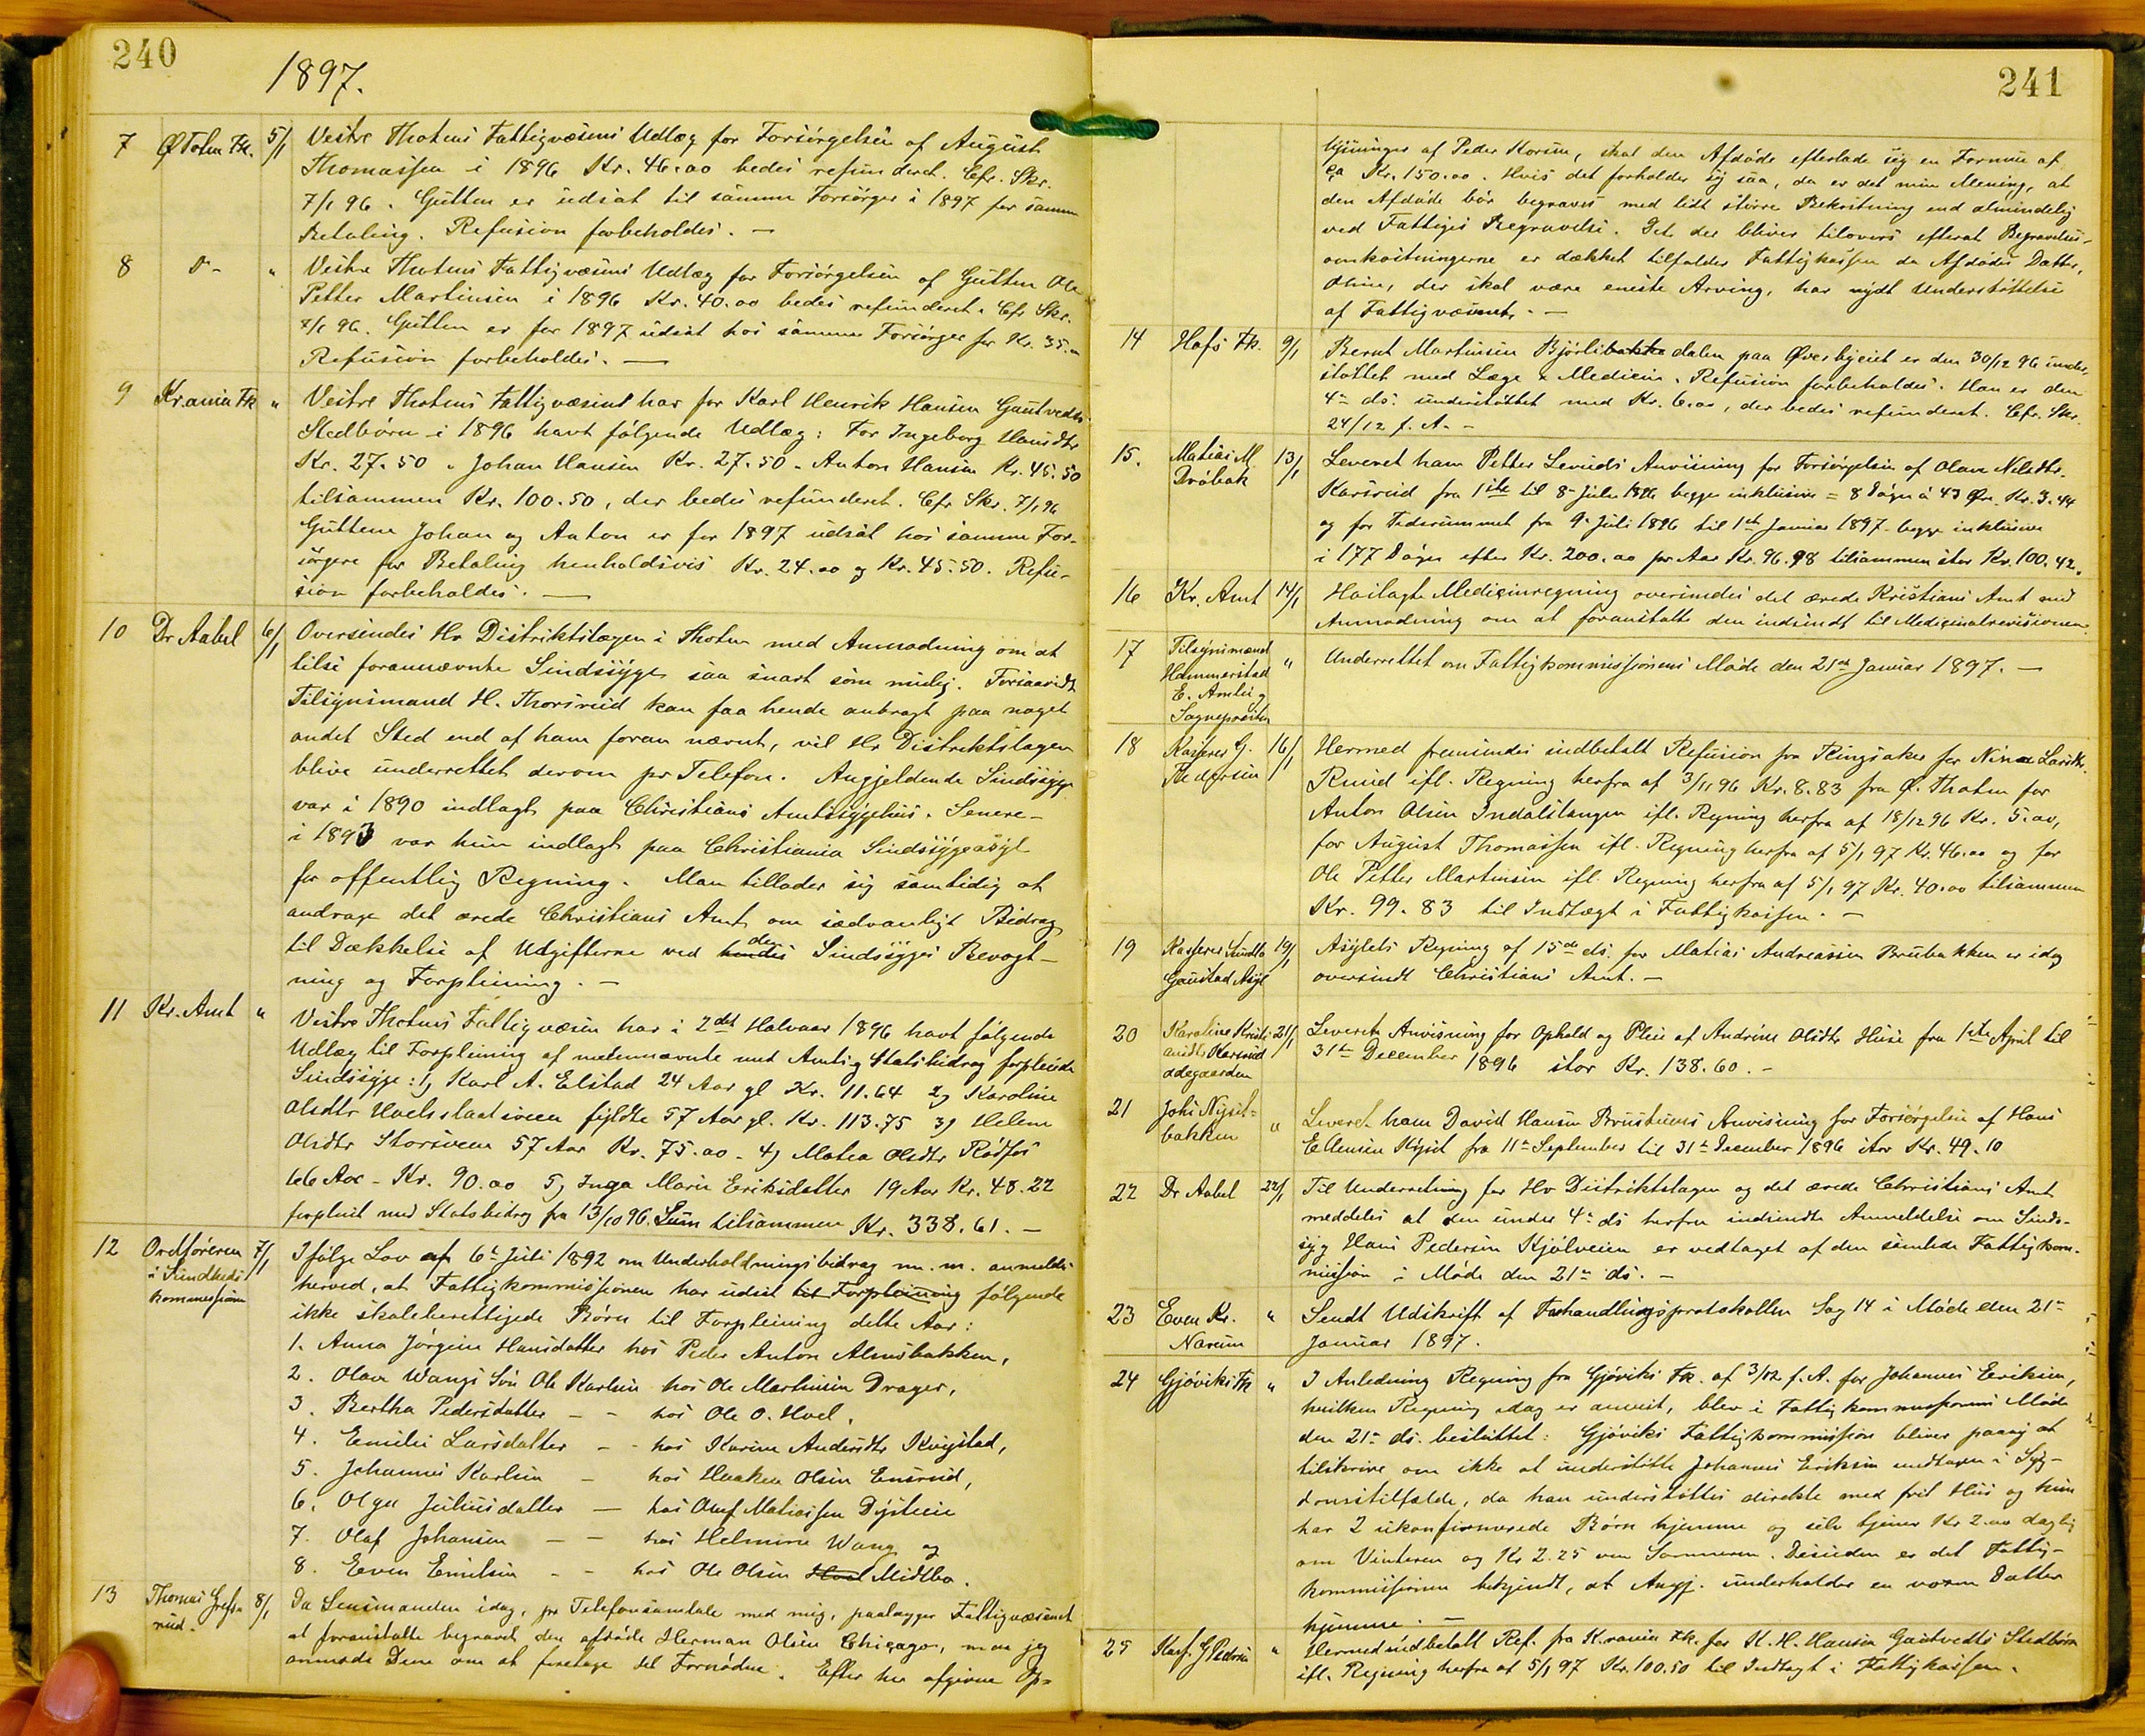 240
1897.
7 ØToten Fk. 5/1 Vestre Thotens Fattigvæsens Udlæg for Forsørgelsen af August
Thomassen i 1896 Kr. 46.00 bedes refunderet. Cfr. Skr.
7/1 96. Gutten er udsat til samme Forsørger i 1897 for samme
Betaling. Refusion forbeholdes. —
8 Do - " Vestre Thotens Fattigvæsens Udlæg for Forsørgelsen af Gutten Ole
Petter Martinsen i 1896 Kr. 40.00 bedes refunderet. Cfr. Skr.
7/1 96. Gutten er for 1897 udsat hos samme Forsørger for Kr. 35.00
Refusion forbeholdes. —
9 Kr.ania Fk " Vestre Thotens Fattigvæsent har for Karl Henrik Hansen Gautvedts
Stedbørn i 1896 havt følgende Udlæg: For Ingeborg Hansdtr
Kr. 27.50 . Johan Hansen Kr. 27.50 - Anton Hansen Kr. 45.50
tilsammen Kr. 100.50, der bedes refunderet. Cfr Skr. 7/1 96
Guttene Johan og Anton er for 1897 udsat hos samme For-
sørgere for Betaling henholdsvis Kr. 24.00 og Kr. 45.50. Refu-
sion forbeholdes. —
10 Dr Aabel 6/1 Oversendes Hr Distriktslægen i Thoten med Anmodning om at
tilse forannævnte Sindssyge saa snart som mulig. Forsaavidt
Tilsynsmand H. Thorsrud kan faa hende anbragt paa noget
andet Sted end af ham foran nævnt, vil Hr Distriktslægen
blive underrettet derom pr Telefon. Angjeldende Sindssyge
var i 1890 indlagt paa Christians Amtssygehus. Senere -
i 1893 var hun indlagt paa Christiania Sindssygeasyl
for offentlig Regning. Man tillader sig samtidig at
andrage det ærede Christians Amt om sædvanligt Bidrag
til Dækkelse af Udgifterne ved hendes den Sindssyges Bevogt-
ning og Forpleining. —
11 Kr. Amt " Vestre Thotens Fattigvæsen har i 2det Halvaar 1896 havt følgende
Udlæg til Forpleining af nedennævnte med Amts og Statsbidrag forpleiede
Sindssyge: 1) Karl A. Elstad 24 Aar gl Kr. 11.64 2) Karoline
Olsdtr Hoelsslaatsveen fyldte 57 Aar gl. Kr. 113.75 3) Helene
Olsdtr Storsveen 57 Aar Kr. 75.00 - 4) Matea Olsdtr Rødfos
66 Aar - Kr. 90.00 5) Inga Marie Eriksdatter 19 Aar Kr. 48.22
forpleiet med Statsbidrag fra 13/10 96. Sum tilsammen Kr. 338.61. —
12 Ordføreren i Sundheds kommissionen 7/1 Ifølge Lov af 6te Juli 1892 om Underholdningsbidrag m. m. anmeldes
herved, at Fattigkommissionen har udsat til Forpleining følgende
ikke skoleberettigede Børn til Forpleining dette Aar:
1. Anna Jørgine Hansdatter hos Peder Anton Alмsbakken,
2. Olava Wangs Søn Ole Karlsen hos Ole Martinsen Drager,
3. Bertha Pedersdatter - - hos Ole O. Hoel,
4. Emilie Larsdatter - - hos Karine Andersdtr Kvigstad,
5. Johannes Karlsen - hos Haaken Olsen Ensrud,
6. Olga Juliusdatter — hos Oluf Matiassen Dysteie
7. Olaf Johansen - - hos Helmine Wang og
8. Even Emilsen - - hos Ole Olsen Hoel Midtbø.
13 Thomas Grefsrud. 8/1 Da Lensmanden idag, pr Telefonsamtale med mig, paalægger Fattigvæsenet
at foranstalte begravet den afdøde Herman Olsen Chicago, maa jeg
anmode Dem om at foretage det Fornødne. Efter her afgivne Op-
241
lysninger af Peder Korsen, skal den Afdøde efterlade sig en Formue af
ca Kr. 150.00. Hvis det forholder sig saa, da er det min Mening, at
den Afdøde bør begraves med lidt større Bekostning end almindelig
ved Fattiges Begravelse. Det der bliver tilovers efterat Begravelses-
omkostningerne er dækket tilfalder Fattigkassen da Afdødes Datter,
Oline, der skal være eneste Arving, har nydt Understøttelse
af Fattigvæsenet. —
14 Hofs Fk. 9/1 Bernt Martinsen Bjørlibakke dalen paa Øverbygeiet er den 30/12 96 under-
støttet med Læge & Medicin. Refusion forbeholdes. Han er den
4de ds. understøttet med Kr. 6.00, der bedes refunderet. Cfr. Skr.
24/12 f. A. -
15. Matias M. Drøbak 13/1 Leveret ham Petter Lenuds Anvisning for Forsørgelsen af Olava Nelsdtr.
Karsrud fra 1ste til 8de Juli 1896 begge inklusive = 8 Døgn à 43 Øre Kr. 3.44
og for Tidsrummet fra 9de Juli 1896 til 1ste Januar 1897 begge inklusive
i 177 Døgn efter Kr. 200.00 pr Aar Kr. 96.98 tilsammen stor Kr. 100.42.
16 Kr. Amt 14/1 Hoslagte Medicinregning oversendes det ærede Kristians Amt med
Anmodning om at foranstalte den indsendt til Medicinalrevisionen.
17 Tilsynsmænd Hammerstad E. Amlie og Sognepresten " Underrettet om Fattigkommissionens Møde den 21de Januar 1897. —
18 Kasserer G. Pedersen 16/1 Hermed fremsendes indbetalt Refusion fra Ringsaker for Nina Larsdtr.
Ruud ifl. Regning herfra af 3/11 96 Kr. 8.83 fra Ø. Thoten for
Anton Olsen Indalstangen ifl. Regning herfra af 18/12 96 Kr. 5.00,
for August Thomassen ifl. Regning herfra af 5/1 97 Kr. 46.00 og for
Ole Petter Martinsen ifl. Regning herfra af 5/1 97 Kr. 40.00 tilsammen
Kr. 99.83 til Indtægt i Fattigkassen. —
19 Kasserer Gaustad Asyl 19/1 Asylets Regning af 15de ds. for Matias Andreassen Brubakken er idag
oversendt Christians Amt. —
20 Karoline Kristiansdtr Karsrudødegaarden 21/1 Leveret Anvisning for Ophold og Pleie af Andrine Olsdtr Huse fra 1ste April til
31te December 1896 stor Kr. 138.60. -
21 Johs Nyset-bakken " Leveret ham David Hansen Anvisning for Forsørgelse af Hans
Ellensen fra 11te September til 31te December 1896 stor Kr. 49.10
22 Dr Aabel 22/1 Til Underretning for Hr Distriktslægen og det ærede Christians Amt
meddeles at den under 4de ds herfra indsendte Anmeldelse om Sinds-
syg Hans Pedersen Kjølveien er vedtaget af den samlede Fattigkom-
mission i Møde den 21de ds. —
23 Even Kr. Narum " Sendt Udskrift af Forhandlingsprotokollen Sag 14 i Møde den 21de
Januar 1897.
24 Gjøviks Fk " I Anledning Regning fra Gjøviks Fk. af 3/12 f. A. for Johannes Eriksen,
hvilken Regning idag er anvist, blev i Fattigkommissionens Møde
den 21de ds. besluttet: Gjøviks Fattigkommission bliver paany at
tilskrive om ikke at understøtte Johannes Eriksen undtagen i Syg-
domstilfælde, da han understøttes direkte med frit Hus og kun
har 2 ukonfirmerede Børn hjemme og selv tjener Kr 2.00 daglig
om Vinteren og Kr 2.25 om Sommeren. Desuden er det Fattig-
kommissionen bekjendt, at Angj. underholder en voxen Datter
hjemme. —
25 Kass. G Pedersen " Hermed indbetalt Ref. fra Kr.ania Fk. for K. H. Hansen Gautvedts Stedbørn
ifl. Regning herfra af 5/1 97 Kr. 100.50 til Indtægt i Fattigkassen.